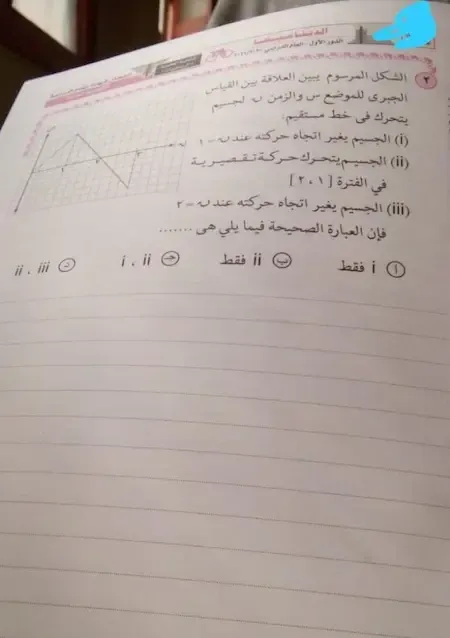 الديناميكا
الدور الأول - العام الدراسي
٢ الشكل المرسوم يبين العلاقة بين القياس
الجبرى للموضع س والزمن ن لجسيم
يتحرك فى خط مستقيم:
(i) الجسيم يغير اتجاه حركته عند ن = ١
(ii) الجسيم يتحرك حركة تقصيرية
في الفترة [٢،١]
(iii) الجسيم يغير اتجاه حركته عند ن = ٢
فإن العبارة الصحيحة فيما يلي هى .......
أ i فقط ب ii فقط ج i ، ii د ii ، iii